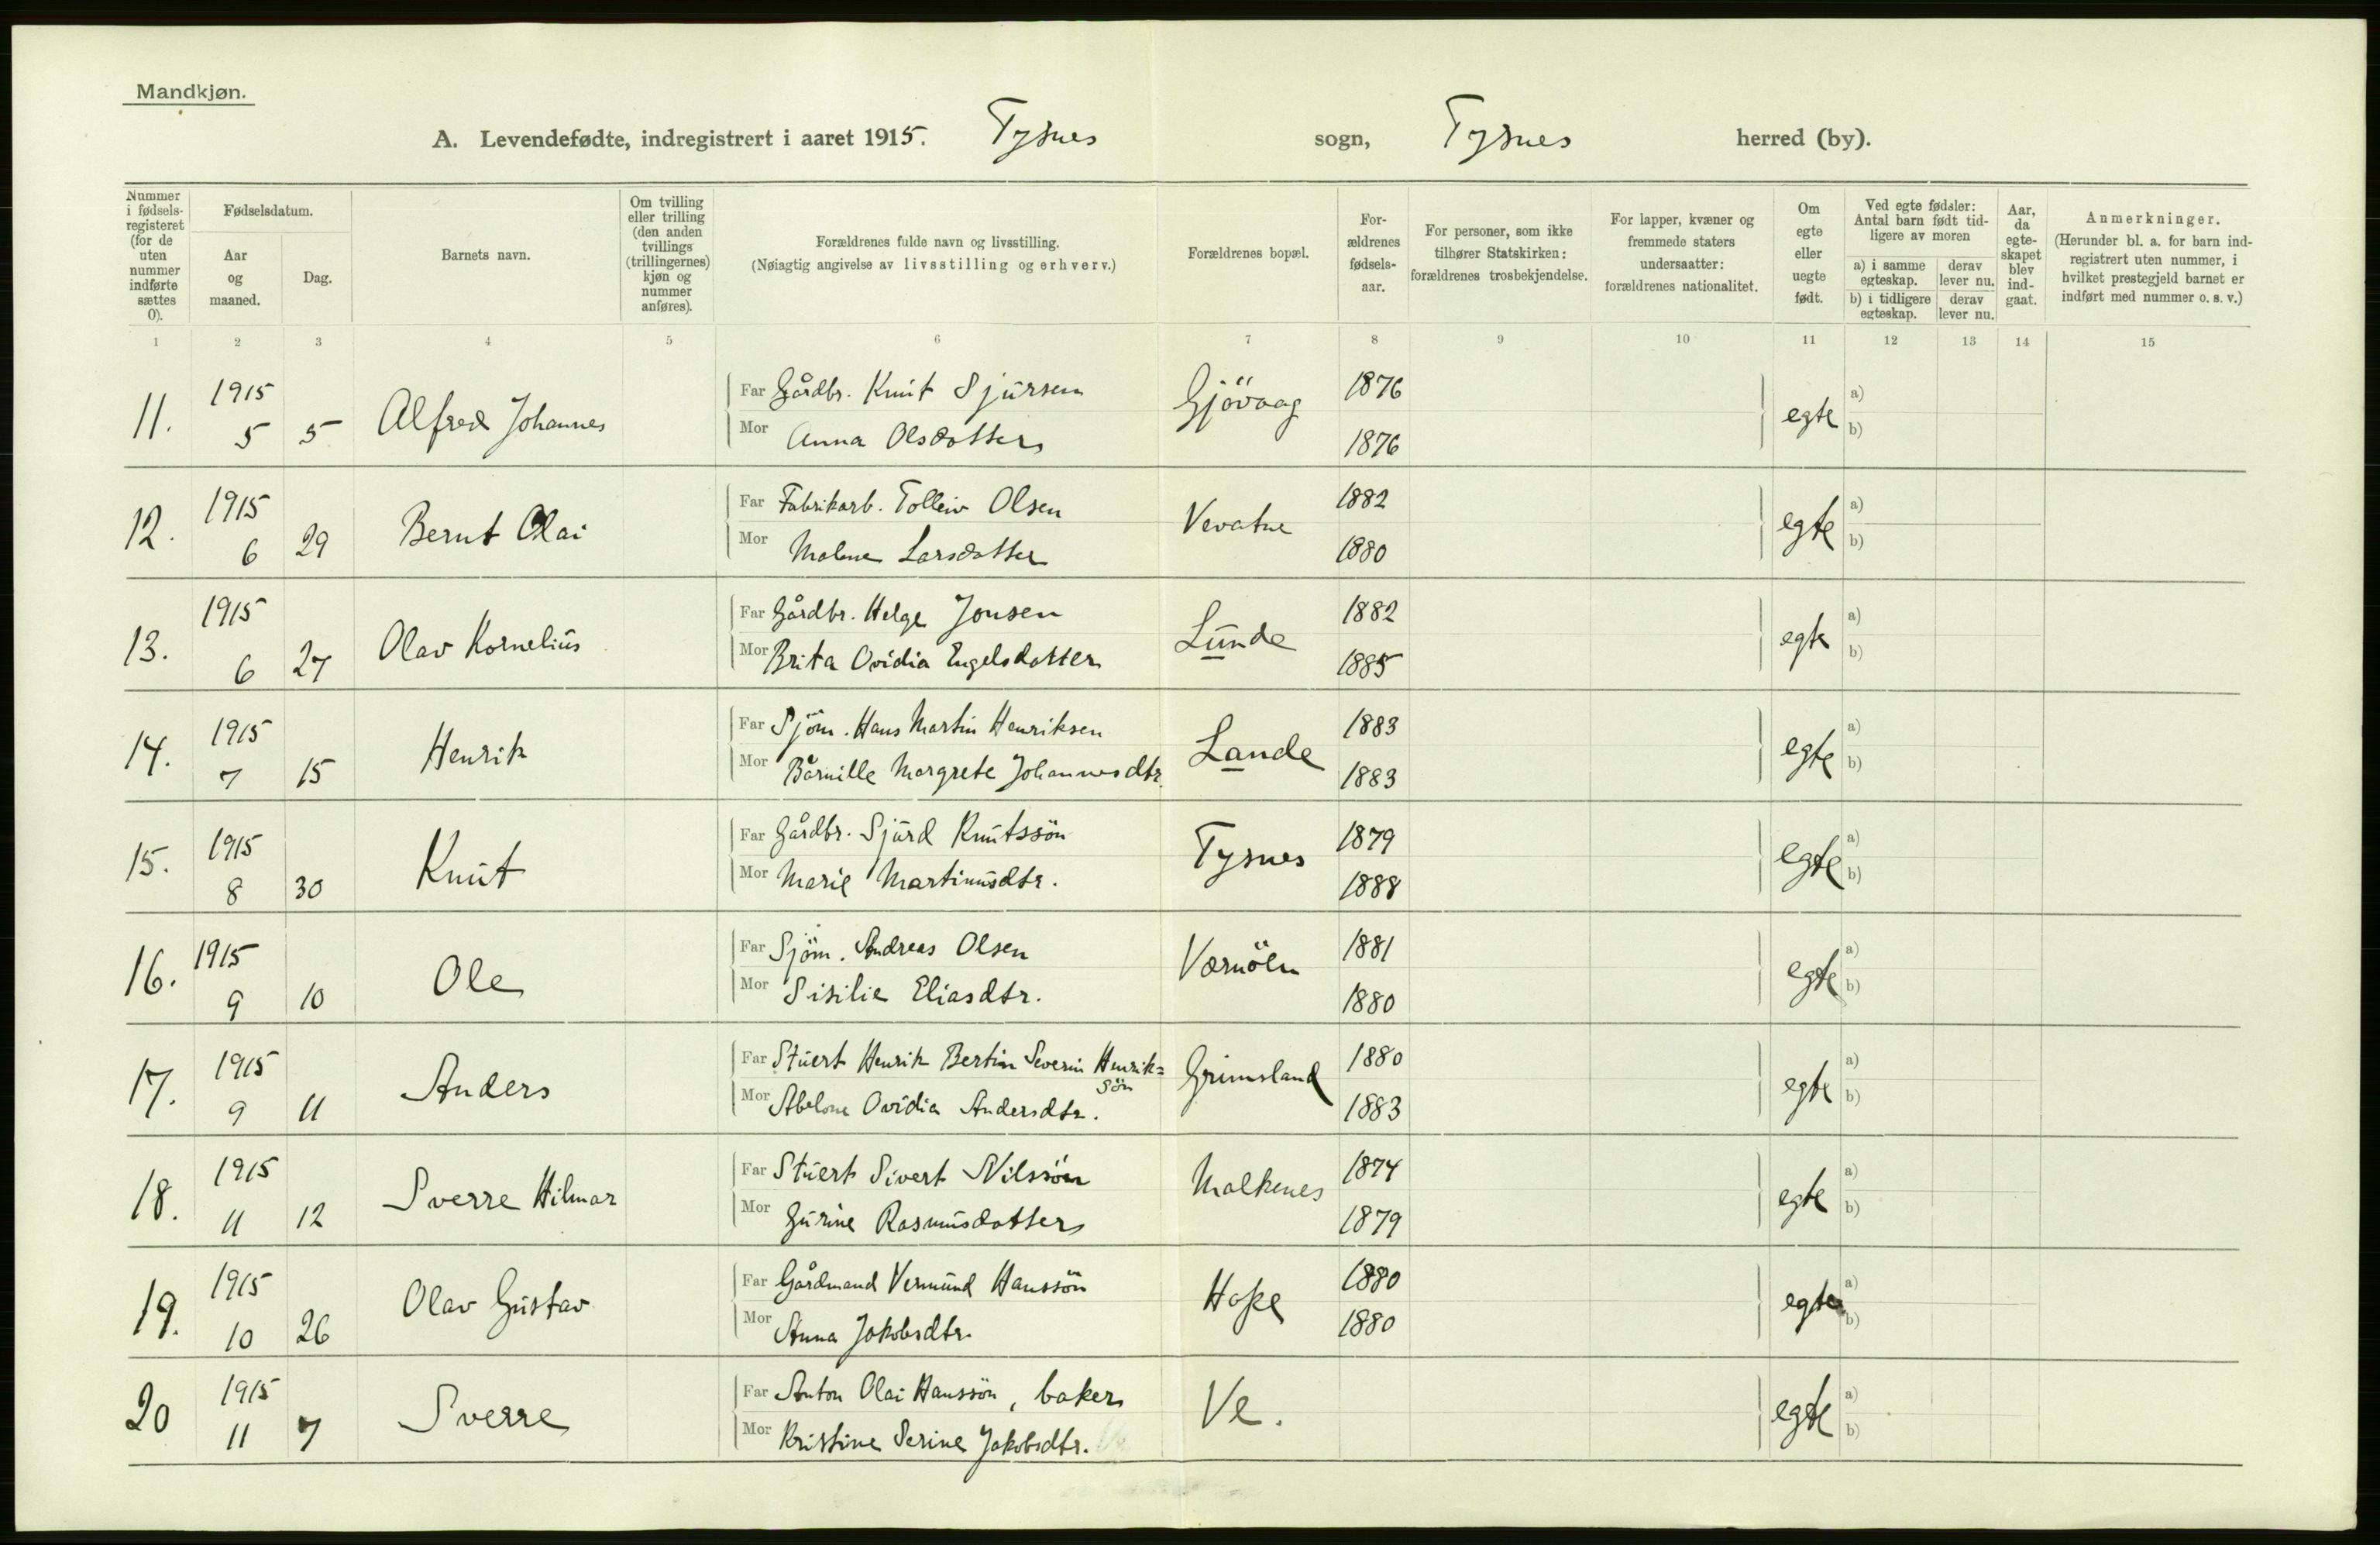 Mandkjøn.
A. Levendefødte, indregistrert i aaret 1915. Tysnes sogn, Tysnes herred (by).
Nummer i fødsels-registeret (for de uten nummer indførte sættes 0).
Fødselsdatum.
Aar og maaned.
Dag.
Barnets navn.
Om tvilling eller trilling (den anden tvillings (trillingernes) kjøn og nummer anføres).
Forældrenes fulde navn og livsstilling.
(Nøiagtig angivelse av livsstilling og erhverv.)
Forældrenes bopæl.
For-ældrenes fødsels-aar.
For personer, som ikke tilhører Statskirken: forældrenes trosbekjendelse.
For lapper, kvæner og fremmede staters undersaatter: forældrenes nationalitet.
Om egte eller uegte født.
Ved egte fødsler: Antal barn født tid-ligere av moren
a) i samme egteskap. derav lever nu.
b) i tidligere egteskap. derav lever nu.
Aar, da egte-skapet blev ind-gaat.
Anmerkninger.
(Herunder bl. a. for barn ind-registrert uten nummer, i hvilket prestegjeld barnet er indført med nummer o. s. v.)
1 2 3 4 5 6 7 8 9 10 11 12 13 14 15
11. 1915 5 5 Alfred Johannes Far Gårdbr. Knut Sjursen Gjövaag 1876 egte a)
Mor Anna Olsdotter 1876 b)
12. 1915 6 29 Bernt Olai Far Fabrikarb. Tolleiv Olsen Vevatne 1882 egte a)
Mor Malene Larsdatter 1880 b)
13. 1915 6 27 Olav Kornelius Far Gårdbr. Helge Jonsen Lunde 1882 egte a)
Mor Brita Ovidia Engelsdatter 1885 b)
14. 1915 7 15 Henrik Far Sjöm. Hans Martin Henriksen Lande 1883 egte a)
Mor Margrete Johannesdtr. 1883 b)
15. 1915 8 30 Knut Far Gårdbr. Sjurd Knutssön Tysnes 1879 egte a)
Mor Marie Martinusdtr. 1888 b)
16. 1915 9 10 Ole Far Sjöm. Andreas Olsen Værnöen 1881 egte a)
Mor Sisilie Eliasdtr. 1880 b)
17. 1915 9 11 Anders Far Stuert Henrik Bertin Severin Henrik=sön Grimsland 1880 egte a)
Mor Abelone Ovidia Andersdtr. 1883 b)
18. 1915 11 12 Sverre Hilmar Far Stuert Sivert Nilssön Malkenes 1874 egte a)
Mor Gurine Rasmusdatter 1879 b)
19. 1915 10 26 Olav Gustav Far Gårdmand Vermund Hanssön Hope 1880 egte a)
Mor Anna Jakobsdtr. 1880 b)
20 1915 11 7 Sverre Far Anton Olai Hanssön, baker Ve. egte a)
Mor Kristine Serine Jakobsdtr. b)